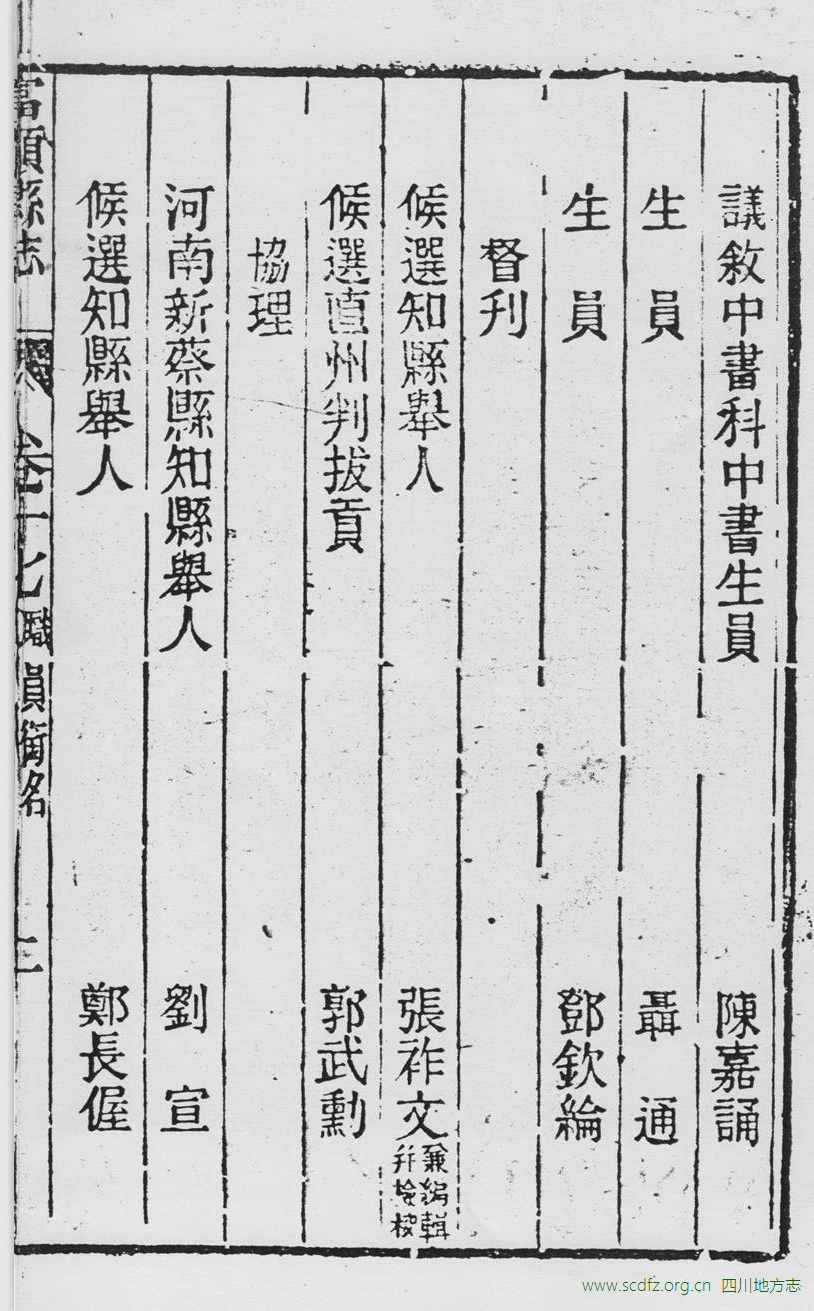 議敘中書科中書生員 陳嘉誦
生員 聶通
生員 鄧欽綸
督刊
候選知縣舉人 張祚文 兼編輯并檢校
候選直州判拔貢 郭武勳
協理
河南新蔡縣知縣舉人 劉宣
候選知縣舉人 鄭長偓
富順縣志 卷十七 職員銜名
www.scdfz.org.cn 四川地方志